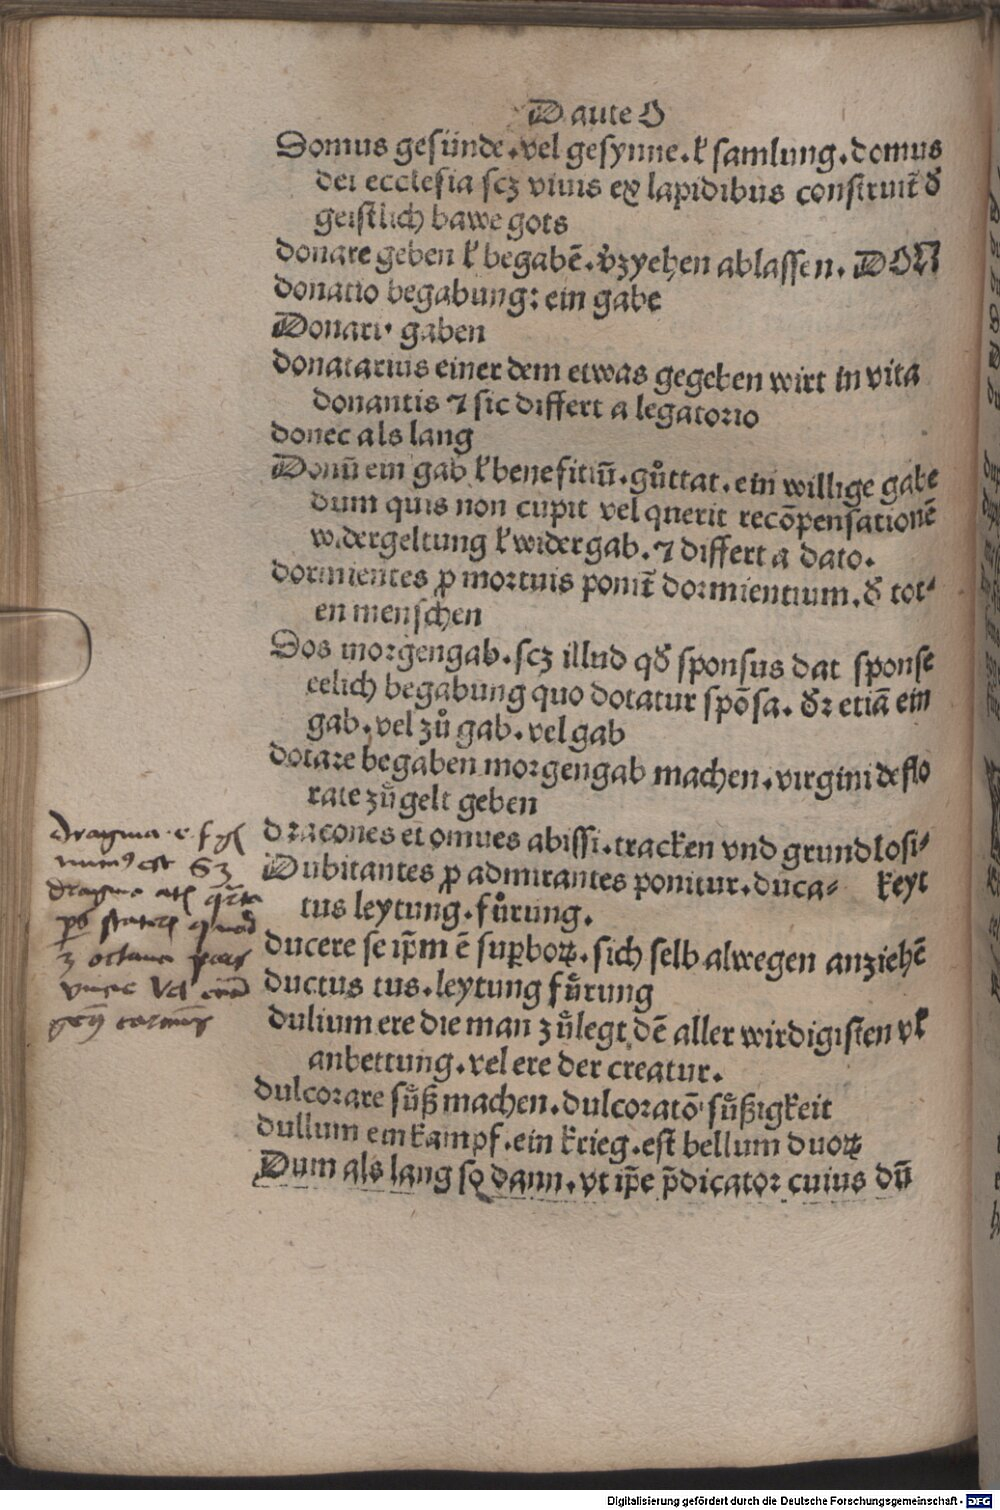 D ante O
Domus gesünde. vel gesynne. ł samlung. domus
dei ecclesia scʒ viuis ex lapidibus construit᷑ d᷑
geistlich bawe gots
donare geben ł begabē. v᷑zyehen ablassen. DON
donatio begabung: ein gabe
Donari gaben
donatarius einer dem etwas gegeben wirt in vita
donantis ⁊ sic differt a legatorio
donec als lang
Donū ein gab ł benefitiū. gůttat. ein willige gabe
dum quis non cupit vel querit recōpensationē
widergeltung ł widergab. ⁊ differt a dato.
dormientes ꝓ mortuis ponit᷑ dormientium. d᷑ tot⸗
en menschen
Dos morgengab. scʒ illud qd᷑ sponsus dat sponse
eelich begabung quo dotatur spōsa. dꝛ etiā ein
gab. vel zů gab. vel gab
dotare begaben morgengab machen. virgini deflo
rate zů gelt geben
dracones et omues abissi. tracken vnd grundlosi⸗
Dubitantes ꝓ admirantes ponitur. duca⸗ keyt
tus leytung. fůrung.
ducere se ip̄m ē suꝑboꝝ. sich selb alwegen anziehē
ductus tus. leytung fůrung
dulium ere die man zůlegt dē aller wirdigisten vł
anbettung. vel ere der creatur.
dulcorare sůß machen. dulcoratō sůßigkeit
dullum ein kampf. ein krieg. est bellum duoꝝ
Dum als lang so dann. vt ip̄e p̄dicator cuius dū
dragma
est
dragma
octaua pars
Digitalisierung gefördert durch die Deutsche Forschungsgemeinschaft - DFG